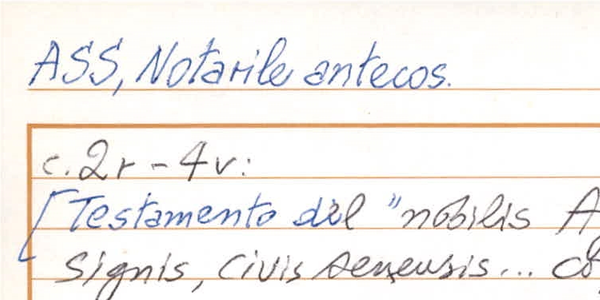 ASS, Notarile antecos.
c. 2r - 4v:
[Testamento del "nobilis
Signis, civis senensis...